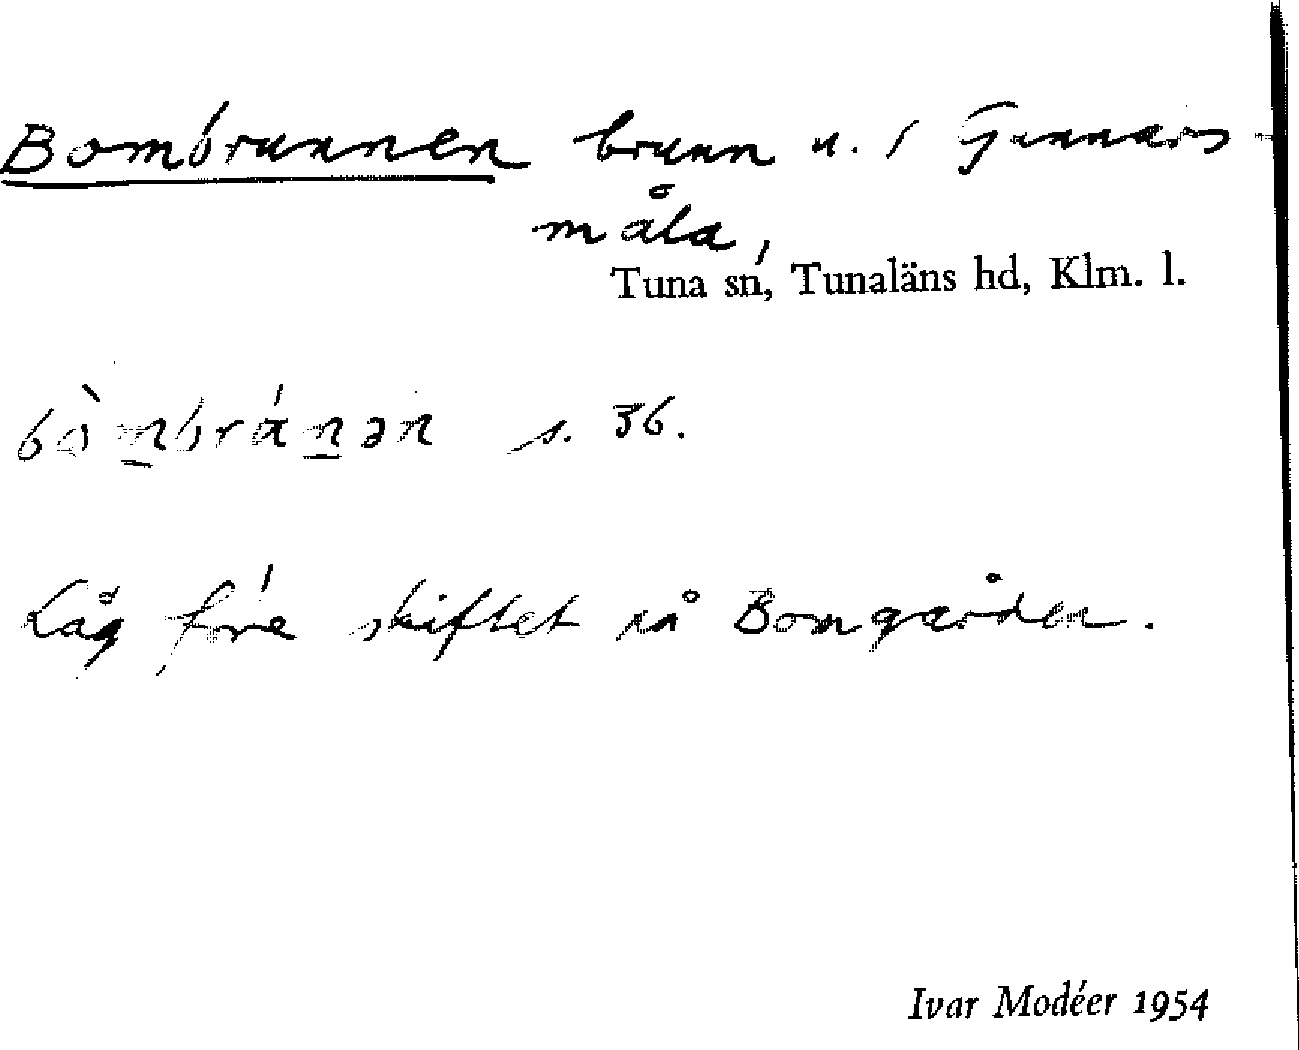 Bombrunnen brunn u. 1 Gunnars-
måla,
Tuna sn, Tunaläns hd, Klm. l.
s. 36.
Låg före skiftet på Bomgården.
Ivar Modéer 1954